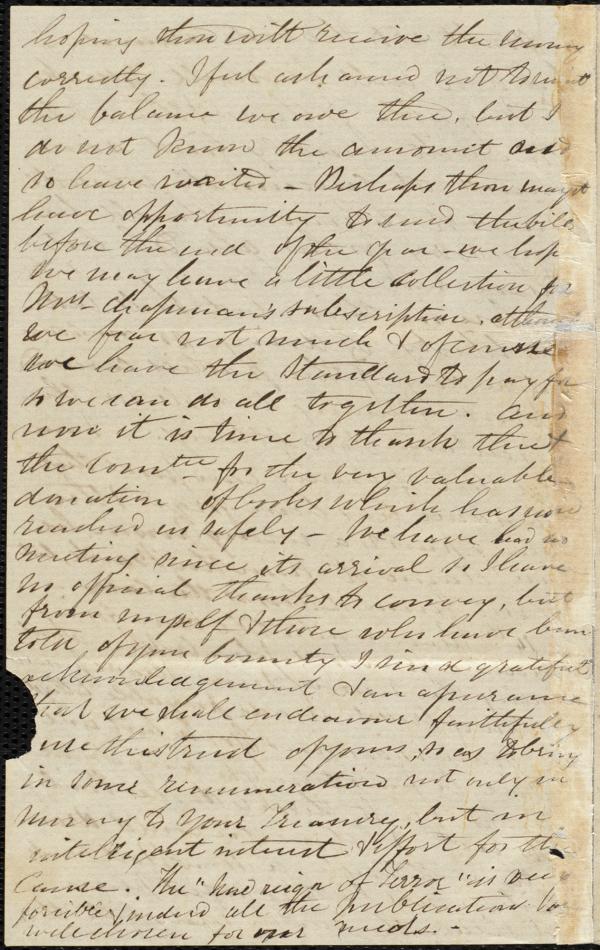 hoping thou wilt receive the money
correctly. I feel ashamed not to remit
the balance we owe thee, but I
do not know the amount and
so have waited – Perhaps thou mayst
have opportunity to send the bill
before the end of the year – we hope
we may have a little collection for
Mrs Chapman's subscription, although
we fear not much & of course
we have the Standard to pay for
so we can do all together. And
now it is time to thank thee &
the Comtee for the very valuable
donation of books which has now
reached us safely – We have had no
meeting since its arrival so I have
no official thanks to convey, but
from myself & those who have been
told of your bounty I send grateful
acknowledgement & an assurance
that we shall endeavour faithfully
use this trust of yours, so as to bring
in some remuneration not only in
money to your Treasury, but in
intelligent interest & effort for the
Cause. The "new reign of Terror" is very
forcible, indeed all the publications are
well chosen for our needs. –